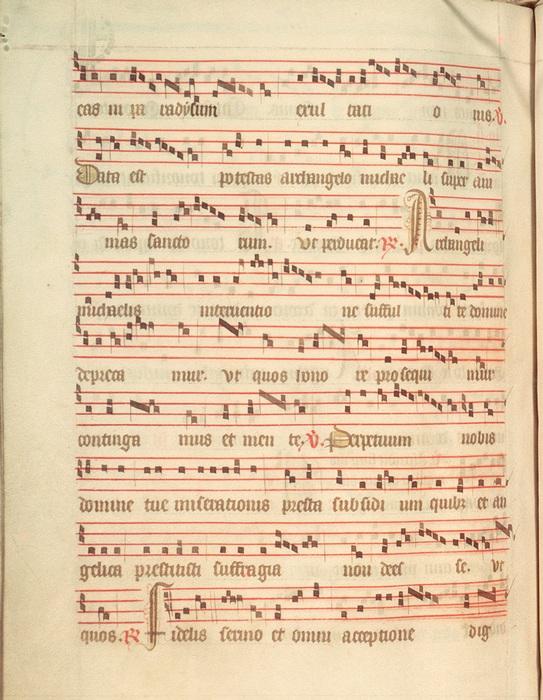 eas in pa radysum exul tati o nis. V.
Data est potestas archangelo michae li super ani
mas sancto rum. Ut perducat. R. Archangeli
michaelis interventio ne sufful ti te domine
depreca mur. ut quos hono re prosequi mur
continga mus et men te. V. Perpetuum nobis
domine tue miserationis presta subsidi um quibz et an
gelica prestitisti suffragia non dees se. ut
quos. R. Fidelis sermo et omni acceptione dig